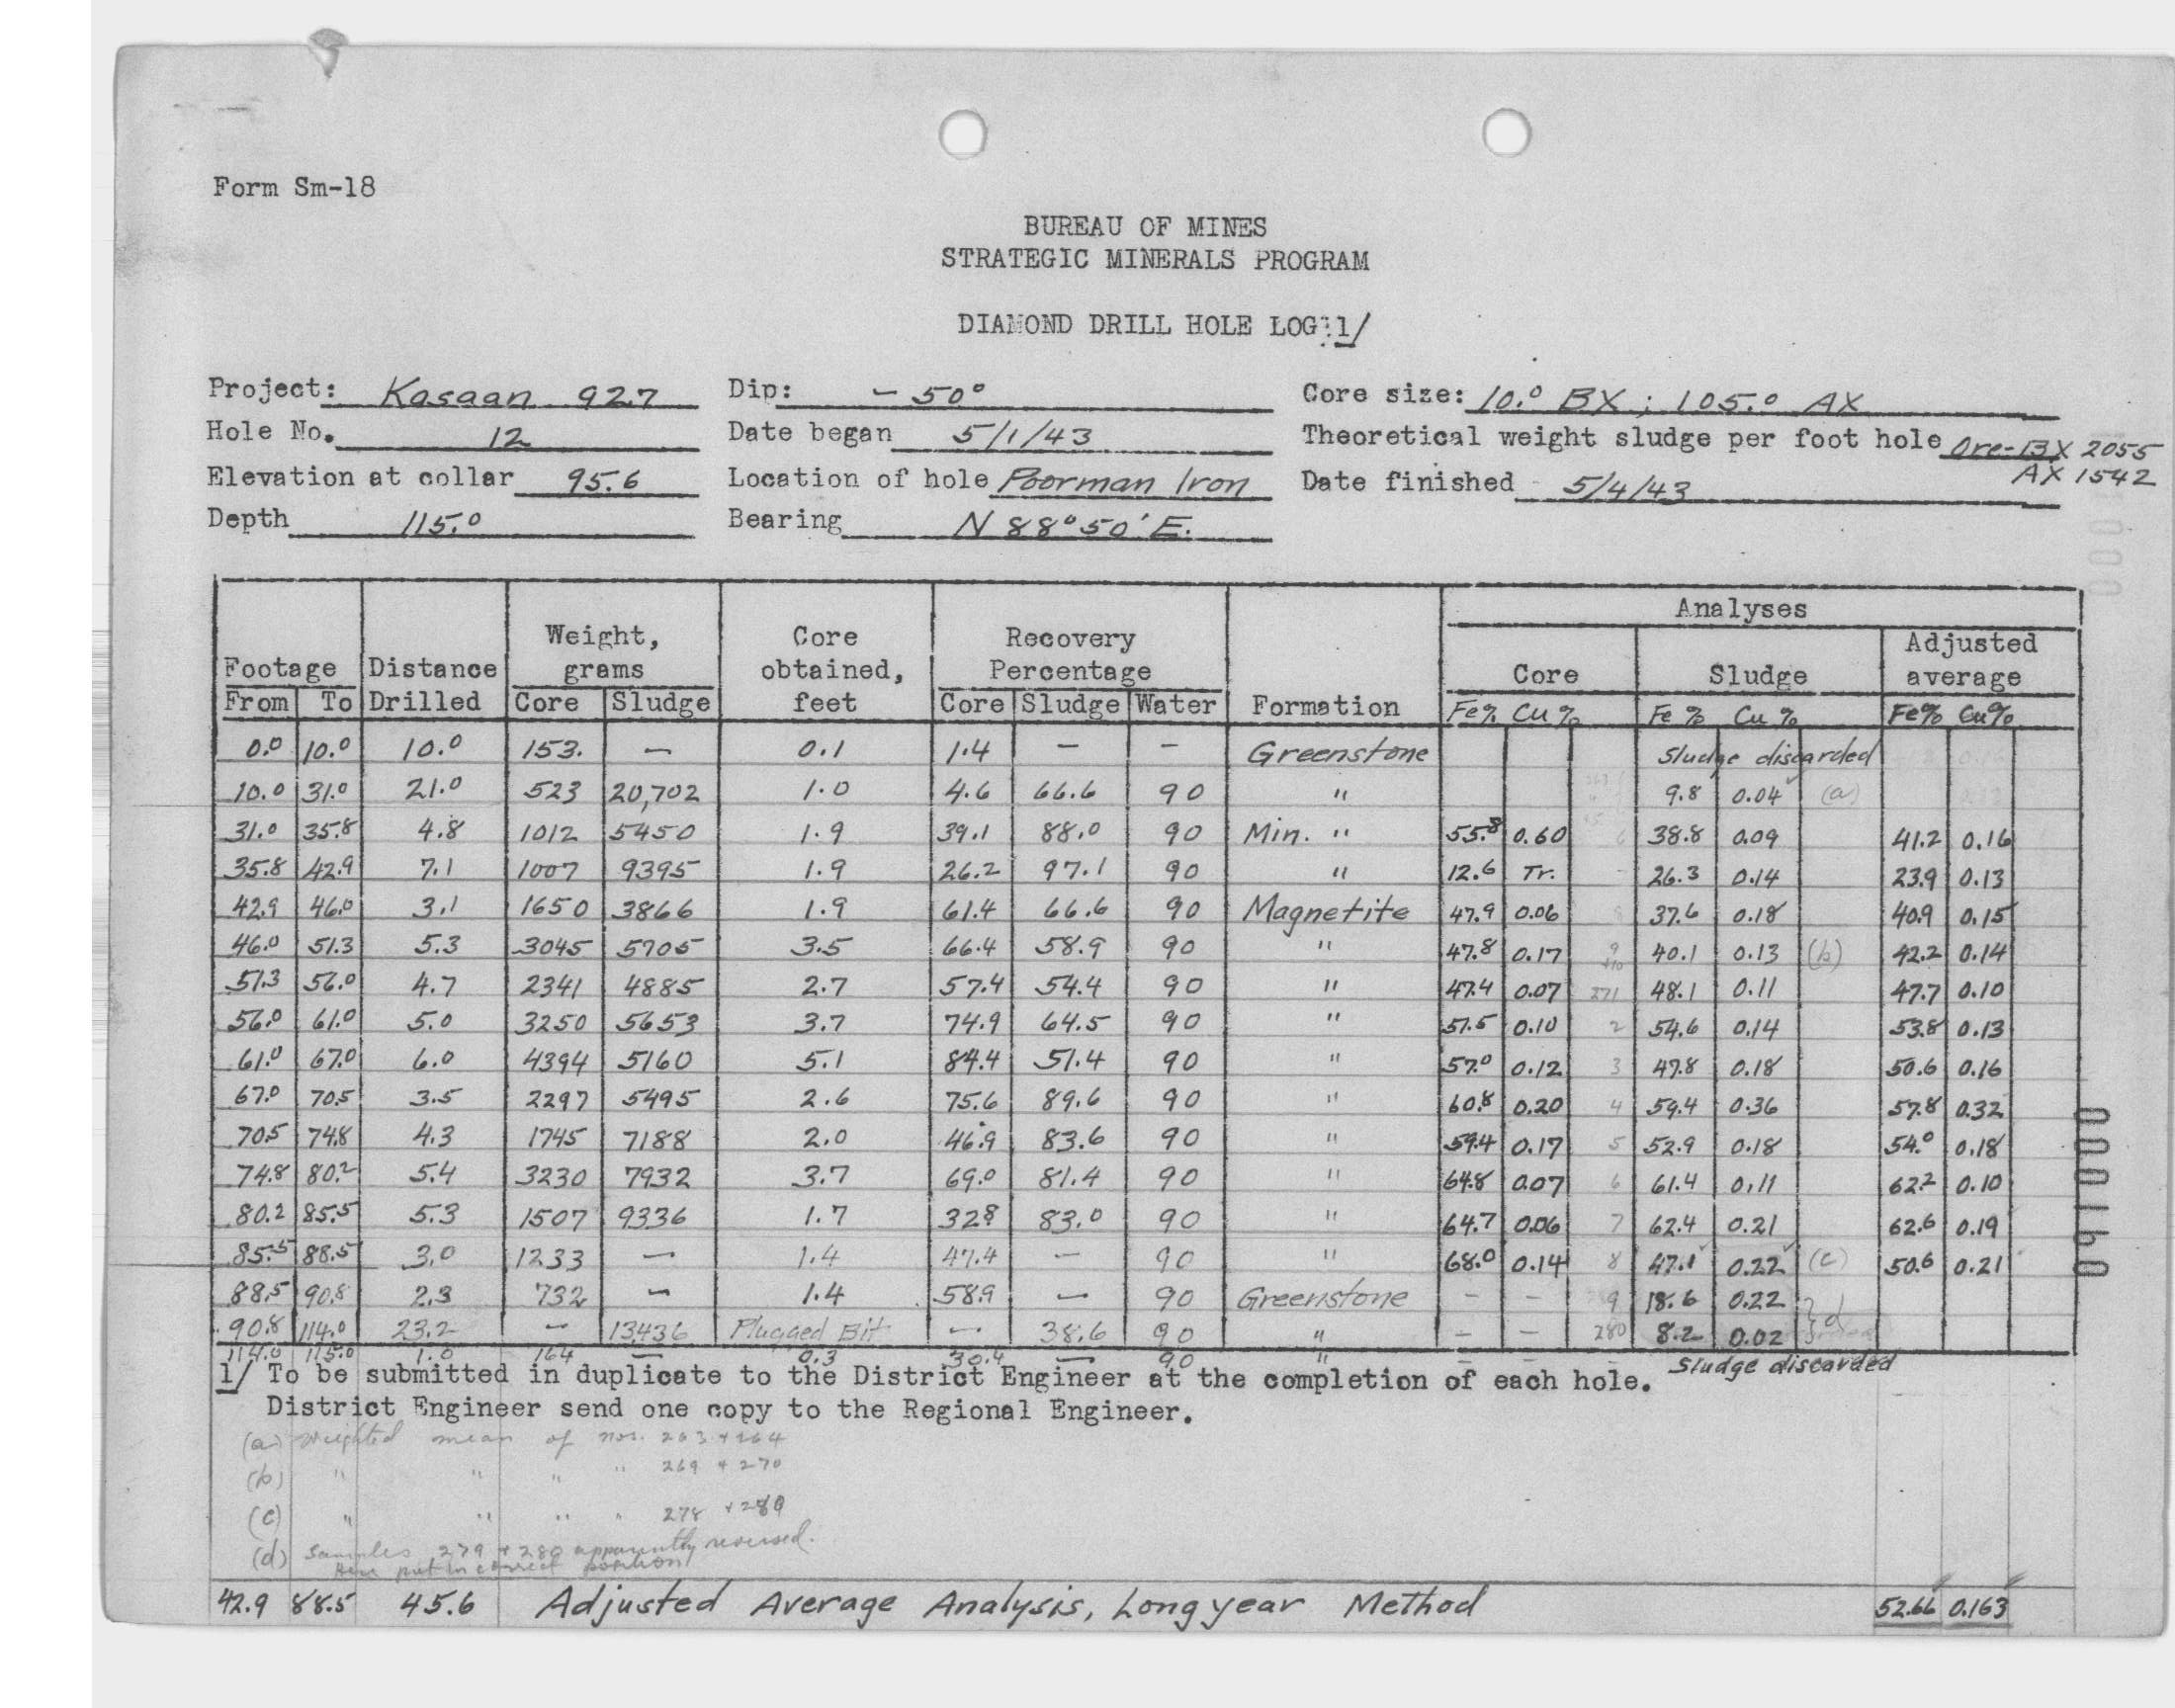 Form Sm-18
BUREAU OF MINES
STRATEGIC MINERALS PROGRAM
DIAMOND DRILL HOLE LOG 1/
Project: Kasaan 927 Dip: - 50° Core size: 10.0 BX ; 105.0 AX
Hole No. 12 Date began 5/1/43 Theoretical weight sludge per foot hole Ore-BX 2055
Elevation at collar 95.6 Location of hole Poorman Iron Date finished 5/4/43 AX 1542
Depth 115.0 Bearing N 88°50' E.
Analyses
Weight, Core Recovery Adjusted
Footage Distance grams obtained, Percentage Core Sludge average
From To Drilled Core Sludge feet Core Sludge Water Formation Fe% Cu% Fe % Cu % Fe% Cu%
0.0 10.0 10.0 153. — 0.1 1.4 — — Greenstone Sludge discarded
10.0 31.0 21.0 523 20,702 1.0 4.6 66.6 90 " 9.8 0.04 (a)
31.0 35.8 4.8 1012 5450 1.9 39.1 88.0 90 Min. " 55.8 0.60 6 38.8 0.09 41.2 0.16
35.8 42.9 7.1 1007 9395 1.9 26.2 97.1 90 " 12.6 Tr. 26.3 0.14 23.9 0.13
42.9 46.0 3.1 1650 3866 1.9 61.4 66.6 90 Magnetite 47.9 0.06 8 37.6 0.18 40.9 0.15
46.0 51.3 5.3 3045 5705 3.5 66.4 58.9 90 " 47.8 0.17 9 +10 40.1 0.13 (b) 42.2 0.14
51.3 56.0 4.7 2341 4885 2.7 57.4 54.4 90 " 47.4 0.07 271 48.1 0.11 47.7 0.10
56.0 61.0 5.0 3250 5653 3.7 74.9 64.5 90 " 51.5 0.10 2 54.6 0.14 53.8 0.13
61.0 67.0 6.0 4394 5160 5.1 84.4 51.4 90 " 57.0 0.12 3 47.8 0.18 50.6 0.16
67.0 70.5 3.5 2297 5495 2.6 75.6 89.6 90 " 60.8 0.20 4 59.4 0.36 57.8 0.32
70.5 74.8 4.3 1745 7188 2.0 46.9 83.6 90 " 59.4 0.17 5 52.9 0.18 54.0 0.18
74.8 80.2 5.4 3230 7932 3.7 69.0 81.4 90 " 64.8 0.07 6 61.4 0.11 62.2 0.10
80.2 85.5 5.3 1507 9336 1.7 32.8 83.0 90 " 64.7 0.06 7 62.4 0.21 62.6 0.19
85.5 88.5 3.0 1233 — 1.4 47.4 — 90 " 68.0 0.14 8 47.1 0.22 (c) 50.6 0.21
88.5 90.8 2.3 732 — 1.4 58.9 — 90 Greenstone — — 9 18.6 0.22 } d
90.8 114.0 23.2 — 13,436 Plugged Bit — 38.6 90 " — — 280 8.2 0.02
114.0 115.0 1.0 164 — 0.3 30.4 — 90 " — — — Sludge discarded
1/ To be submitted in duplicate to the District Engineer at the completion of each hole.
District Engineer send one copy to the Regional Engineer.
(a) Weighted mean of nos. 263 + 264
(b) " " " " 269 + 270
(c) " " " " 278 + 280
(d) Samples 279 + 280 apparently reversed.
Here put in correct position
42.9 88.5 45.6 Adjusted Average Analysis, Longyear Method 52.66 0.163
041000